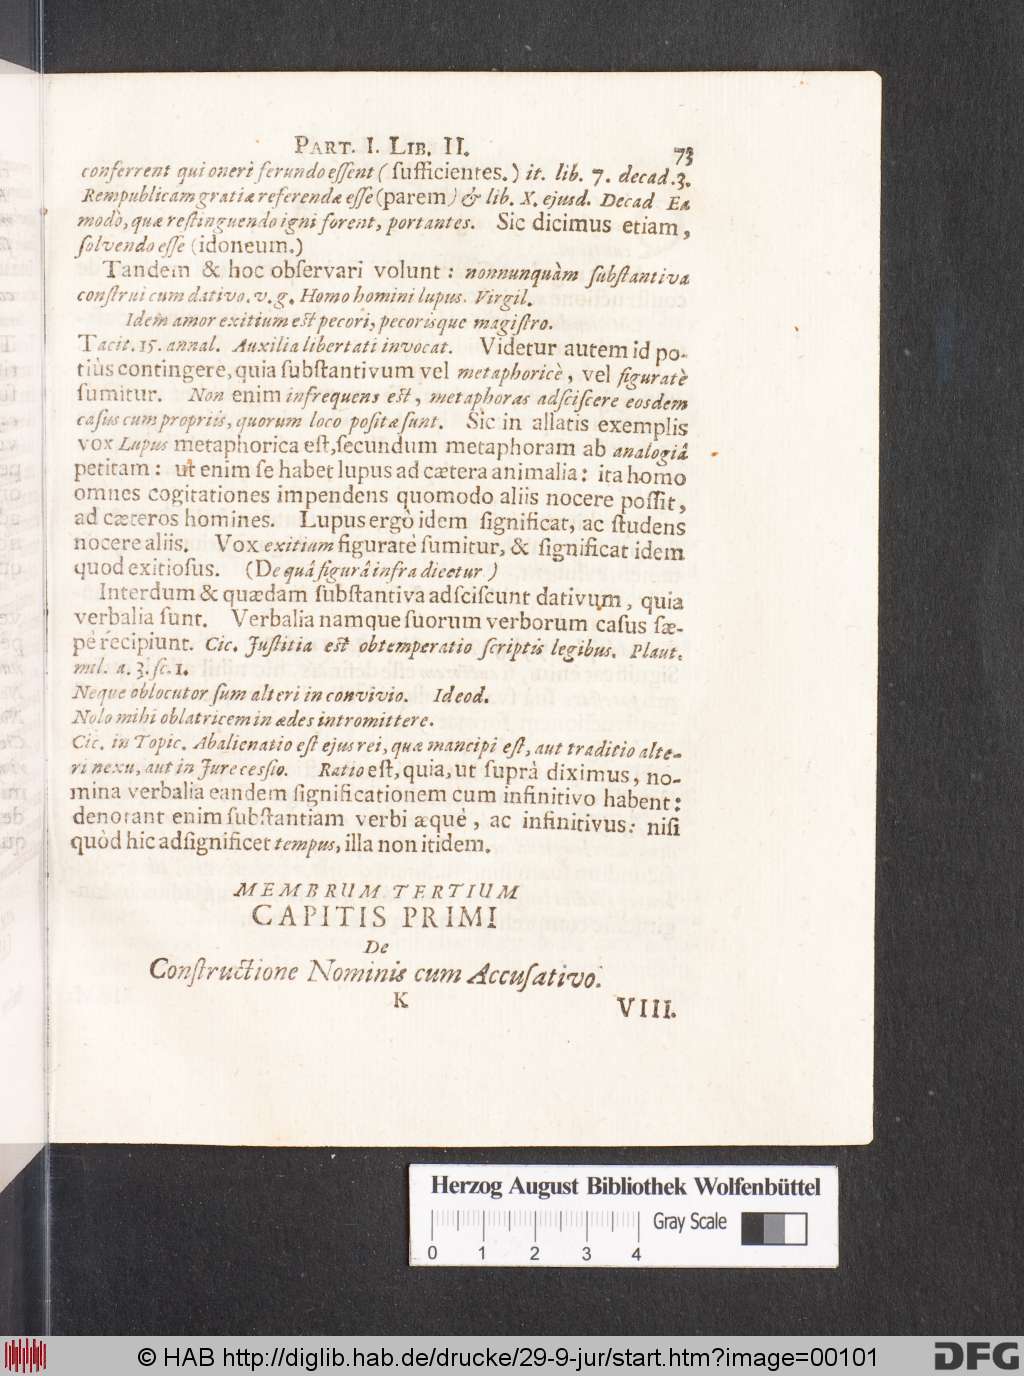 PART. I. LIB. II. 73
conferrent qui oneri ferundo essent (sufficientes.) it. lib. 7. decad. 3.
Rempublicam gratiæ referendæ esse (parem) & lib. X. ejusd. Decad Ea
modò, quæ restinguendo igni forent, portantes. Sic dicimus etiam,
solvendo esse (idoneum.)
Tandem & hoc observari volunt: nonnunquàm substantiva
construi cum dativo. v. g. Homo homini lupus. Virgil.
Idem amor exitium est pecori, pecorisque magistro.
Tacit. 15. annal. Auxilia libertati invocat. Videtur autem id po-
tiùs contingere, quia substantivum vel metaphoricè, vel figuratè
sumitur. Non enim infrequens est, metaphoras adsciscere eosdem
casus cum propriis, quorum loco positæ sunt. Sic in allatis exemplis
vox Lupus metaphorica est, secundum metaphoram ab analogiâ
petitam: ut enim se habet lupus ad cætera animalia: ita homo
omnes cogitationes impendens quomodo aliis nocere possit,
ad cæteros homines. Lupus ergò idem significat, ac studens
nocere aliis. Vox exitium figuratè sumitur, & significat idem
quod exitiosus. (De quâ figurâ infra dicetur)
Interdum & quædam substantiva adsciscunt dativum, quia
verbalia sunt. Verbalia namque suorum verborum casus sæ-
pè recipiunt. Cic. Justitia est obtemperatio scriptis legibus. Plaut.
mil. a. 3. sc. 1.
Neque oblocutor sum alteri in convivio. Ideod.
Nolo mihi oblatricem in ædes intromittere.
Cic. in Topic. Abalienatio est ejus rei, quæ mancipi est, aut traditio alte-
ri nexu, aut in Jure cessio. Ratio est, quia, ut suprà diximus, no-
mina verbalia eandem significationem cum infinitivo habent:
denotant enim substantiam verbi æquè, ac infinitivus: nisi
quòd hic adsignificet tempus, illa non itidem.
MEMBRUM TERTIUM
CAPITIS PRIMI
De
Constructione Nominis cum Accusativo.
K
VIII.
Herzog August Bibliothek Wolfenbüttel
Gray Scale
0 1 2 3 4
© HAB http://diglib.hab.de/drucke/29-9-jur/start.htm?image=00101
DFG